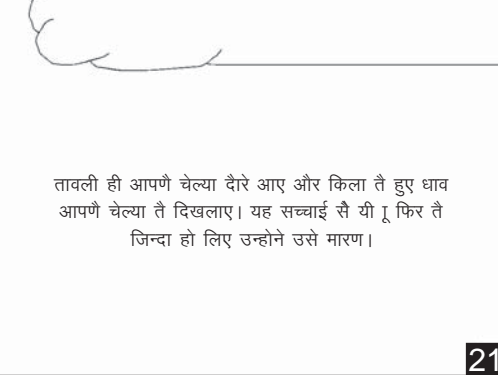 तावली ही आपणै चेल्या दैारे आए और किला तै हुए धाव
आपणै चेल्या तै दिखलाए। यह सच्चाई सेै यी ाू फिर तै
जिन्दा हो लिए उन्होने उसे मारण।
21